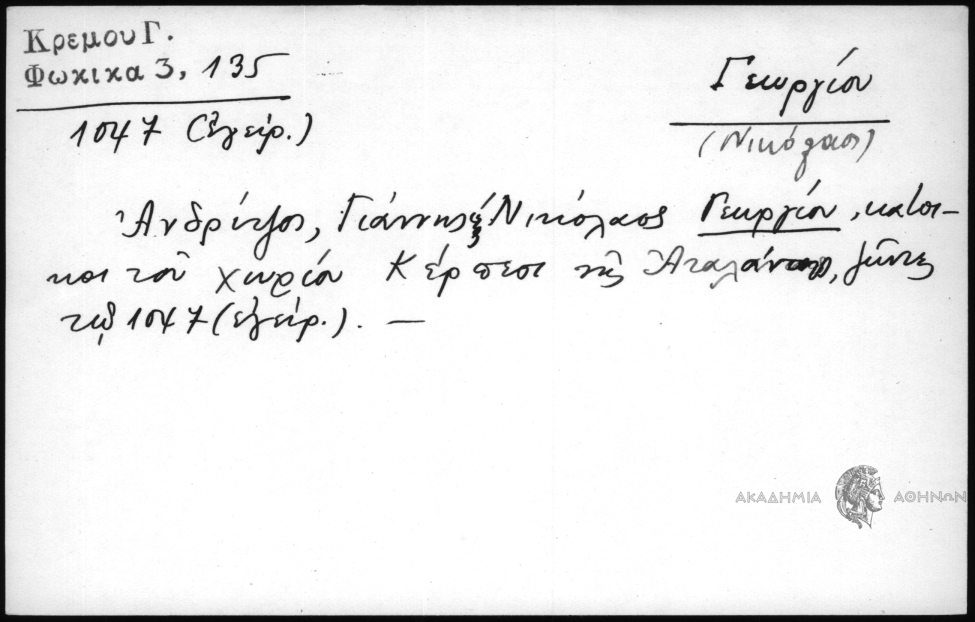 Κρεμου Γ.
Φωκικα 3, 135
1047 (ἐγείρ.)
Γεωργίου
(Νικόλαος)
Ἀνδρίτζος, Γιάννης & Νικόλαος Γεωργίου, κάτοι-
κοι τοῦ χωρίου Κέρπεσι τῆς Ἀταλάντης, ζῶντες
τῷ 1047 (ἐγείρ.). —
ΑΚΑΔΗΜΙΑ ΑΘΗΝΩΝ